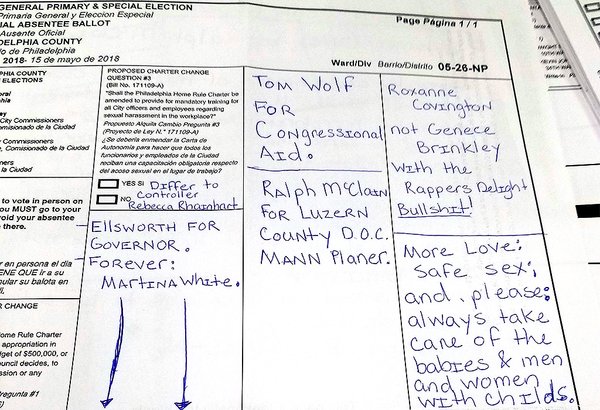 GENERAL PRIMARY & SPECIAL ELECTION
Primaria General y Eleccion Especial
AL ABSENTEE BALLOT
Ausente Oficial
DELPHIA COUNTY
do de Philadelphia
2018- 15 de mayo de 2018
Page Página 1 / 1
Ward/Div Barrio/Distrito 05-26-NP
PHIA COUNTY
ELECTIONS
City Commissioners
Comisionado de la Ciudad
City Commissioners
Comisionado de la Ciudad
to vote in person on
you MUST go to your
void your absentee
there.
er en persona el día
ENE QUE ir a su
nular su balota en
R CHANGE
Home Rule Charter
appropriation in
dget of $500,000, or
ouncil decides, to
ssion or any
regunta #1
PROPOSED CHARTER CHANGE
QUESTION #3
(Bill No. 171109-A)
"Shall the Philadelphia Home Rule Charter be
amended to provide for mandatory training for
all City officers and employees regarding
sexual harassment in the workplace?"
Propuesto Alquila Cambio Pregunta #3
(Proyecto de Ley N.° 171109-A)
¿Se debería enmendar la Carta de
Autonomía para hacer que todos los
funcionarios y empleados de la Ciudad
reciban una capacitación obligatoria respecto
del acoso sexual en el lugar de trabajo?
YES SI Differ to
NO Controller
Rebecca Rhainhart
Ellsworth for
Governor.
Forever:
Martina White.
Tom Wolf
for
Congressional
Aid.
Ralph McClain
for Luzern
County D.O.C.
Mann Planer.
Roxanne
Covington
not Genece
Brinkley
with the
Rappers Delight
Bullshit!
More Love;
safe sex;
and, please:
always take
care of the
babies & men
and women
with childs.